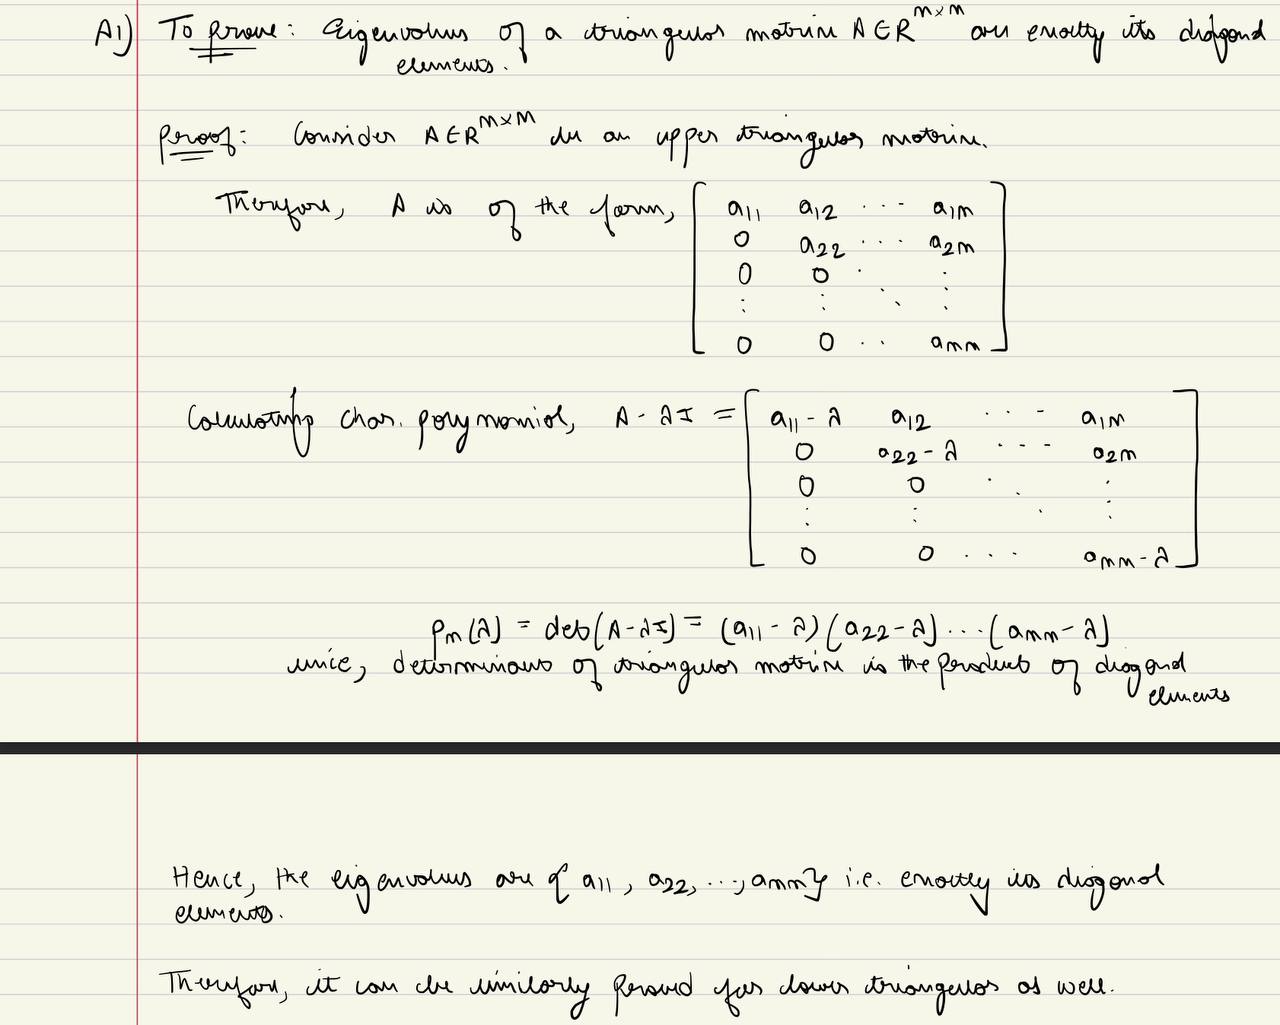 A1) To prove: Eigenvalues of a triangular matrix A ∈ R^{m×m} are exactly its diagonal
elements.
Proof: Consider A ∈ R^{m×m} be an upper triangular matrix.
Therefore, A is of the form, [ a11 a12 ... a1m
0 a22 ... a2m
0 0 . :
: : ⋱ :
0 0 .. amm ]
Calculating char. polynomial, A - λI = [ a11 - λ a12 ... a1m
0 a22 - λ ... a2m
0 0 ⋱ :
: : . :
0 0 ... amm - λ ]
pm(λ) = det(A - λI) = (a11 - λ)(a22 - λ)...(amm - λ)
since, determinant of triangular matrix is the product of diagonal
elements
Hence, the eigenvalues are {a11, a22, ..., amm} i.e. exactly its diagonal
elements.
Therefore, it can be similarly proved for lower triangular as well.